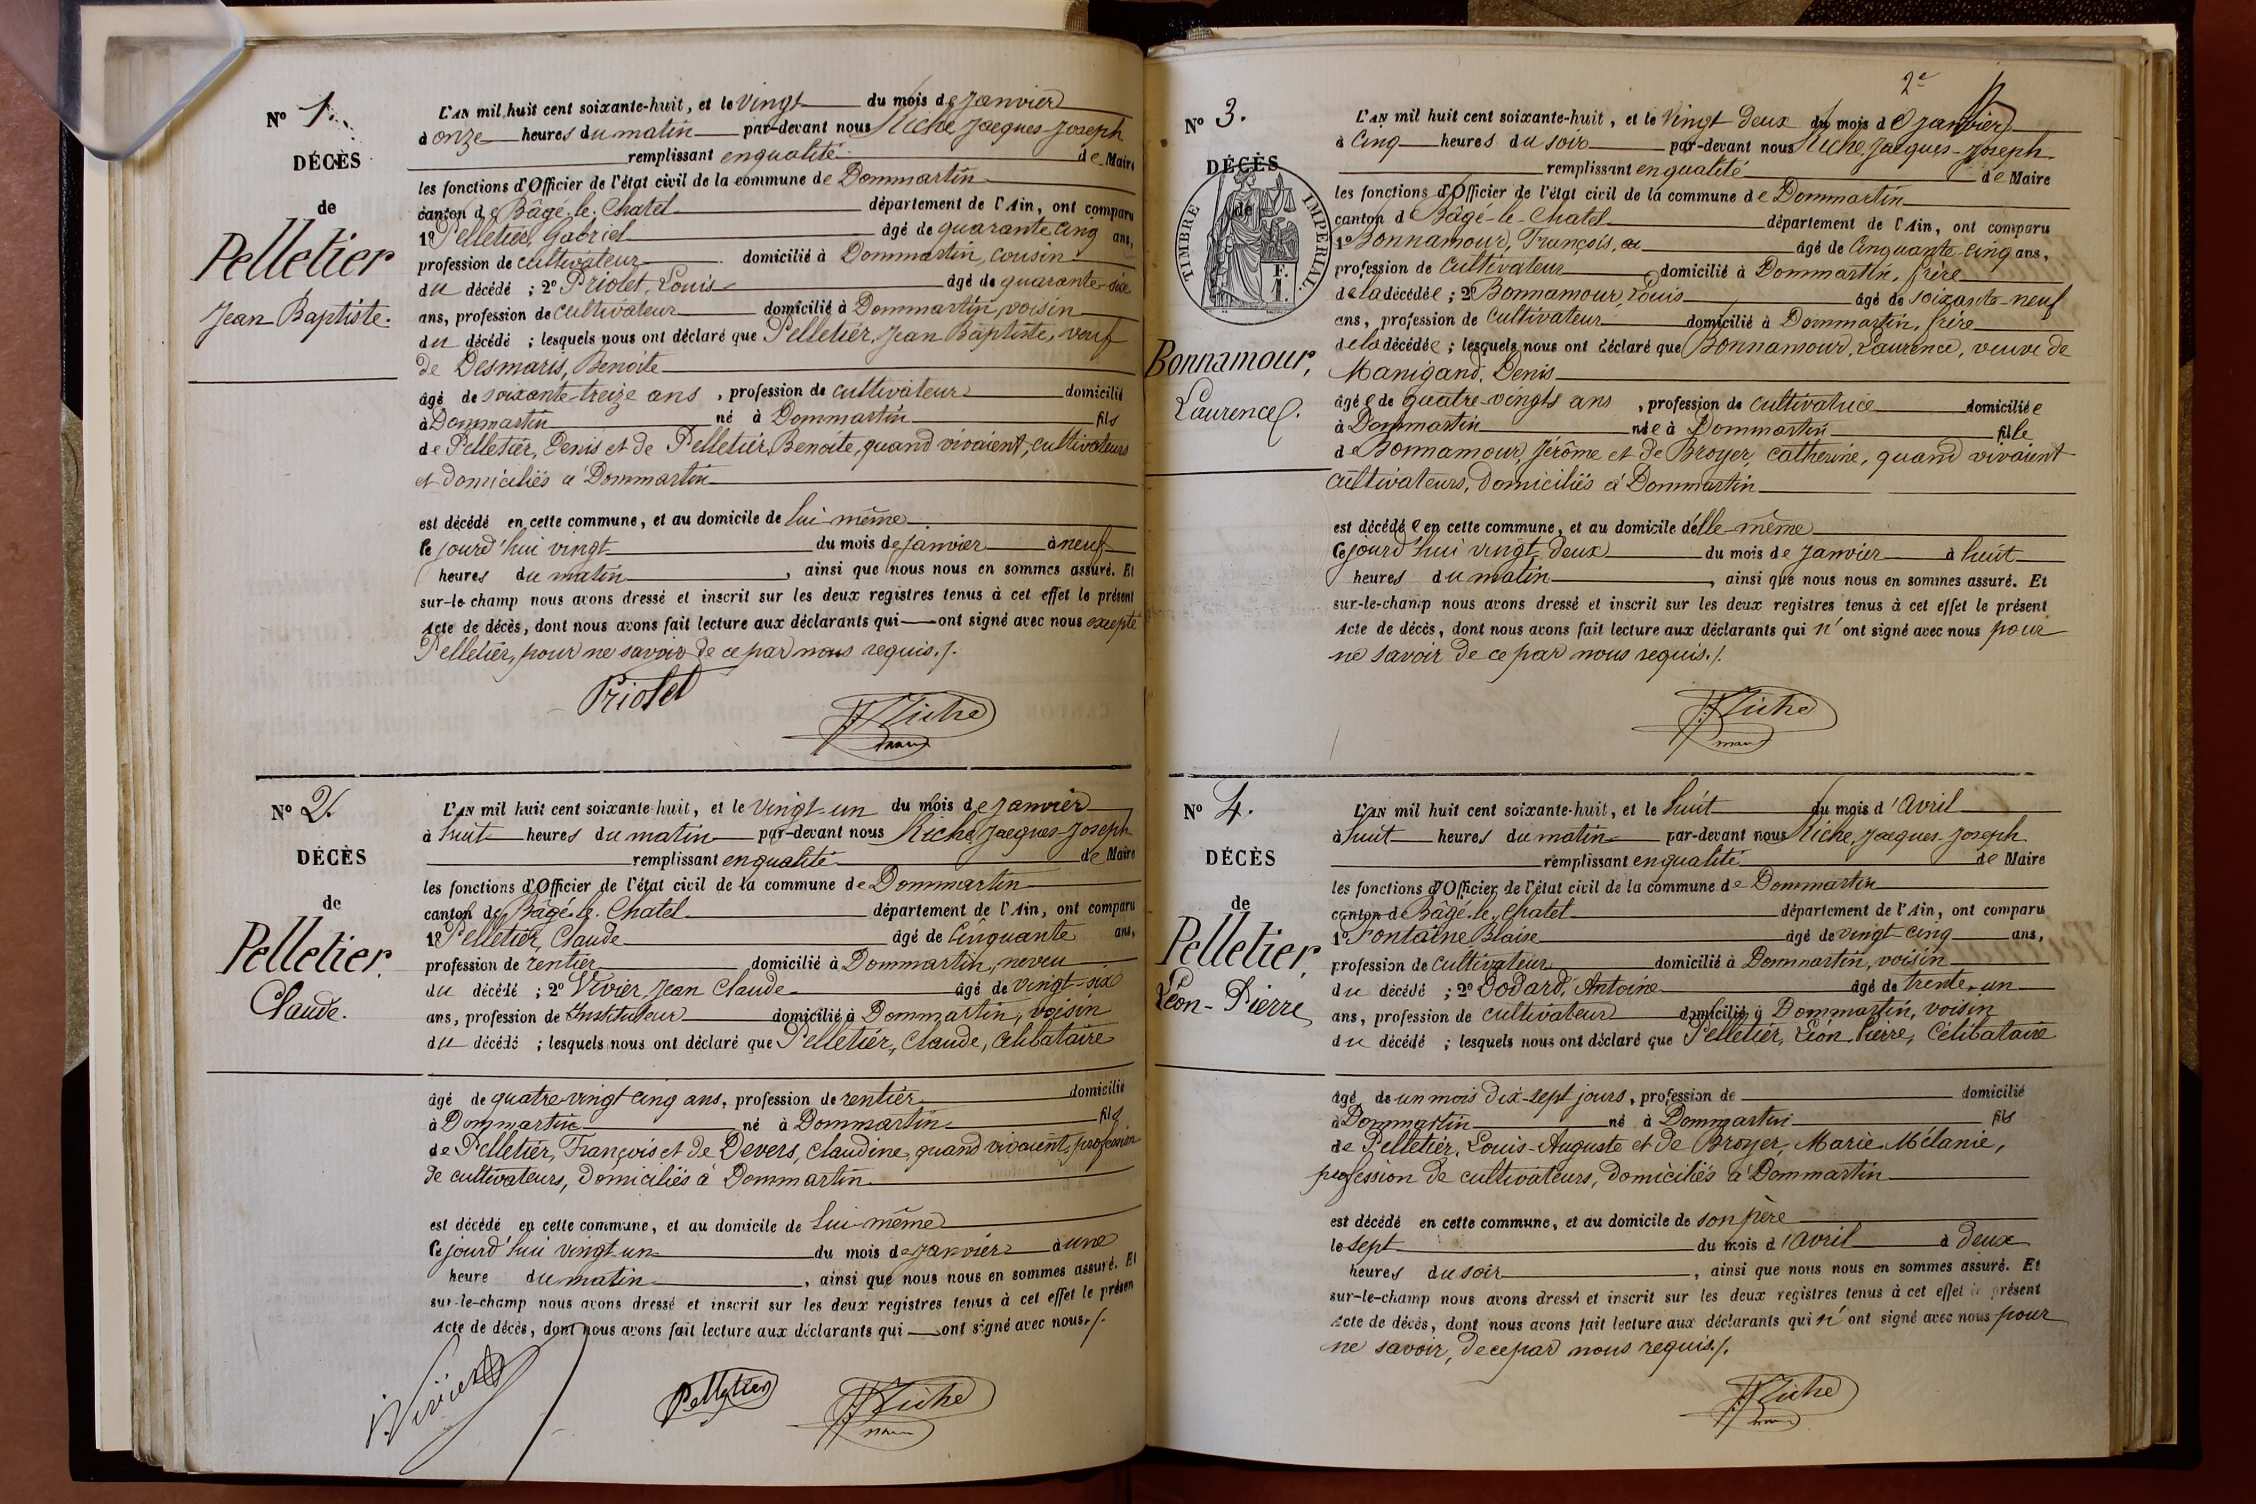 Nº 1.
DÉCÈS
de
Pelletier
Jean Baptiste.
L'AN mil huit cent soixante-huit, et le vingt du mois de Janvier
à onze heures du matin par-devant nous Riche Jacques-Joseph
remplissant en qualité de Maire
les fonctions d'Officier de l'état civil de la commune de Dommartin
canton de Bâgé-le-Chatel département de l'Ain, ont comparu
1º Pelletier, Gabriel âgé de quarante cinq ans,
profession de cultivateur domicilié à Dommartin, cousin
du décédé ; 2º Priolet, Louis âgé de quarante-six
ans, profession de cultivateur domicilié à Dommartin, voisin
du décédé ; lesquels nous ont déclaré que Pelletier, Jean Baptiste, veuf
de Desmaris, Benoite
âgé de soixante-treize ans, profession de cultivateur domicilié
à Dommartin né à Dommartin fils
de Pelletier, Denis et de Pelletier, Benoite, quand vivaient, cultivateurs
et domiciliés à Dommartin
est décédé en cette commune, et au domicile de lui-même
ce jourd'hui vingt du mois de Janvier à neuf
heures du matin, ainsi que nous nous en sommes assuré. Et
sur-le-champ nous avons dressé et inscrit sur les deux registres tenus à cet effet le présent
Acte de décès, dont nous avons fait lecture aux déclarants qui ont signé avec nous excepté
Pelletier, pour ne savoir de ce par nous requis./.
Priolet
Riche
Nº 2.
DÉCÈS
de
Pelletier,
Claude.
L'AN mil huit cent soixante-huit, et le vingt-un du mois de Janvier
à huit heures du matin par-devant nous Riche Jacques-Joseph
remplissant en qualité de Maire
les fonctions d'Officier de l'état civil de la commune de Dommartin
canton de Bâgé-le-Chatel département de l'Ain, ont comparu
1º Pelletier, Claude âgé de Cinquante ans,
profession de rentier domicilié à Dommartin, neveu
du décédé ; 2º Vivier, Jean Claude âgé de vingt-six
ans, profession de Instituteur domicilié à Dommartin, voisin
du décédé ; lesquels nous ont déclaré que Pelletier, Claude, Célibataire
âgé de quatre-vingt cinq ans, profession de rentier domicilié
à Dommartin né à Dommartin fils
de Pelletier, François et de Devers, Claudine, quand vivaient, profession
de cultivateurs, domiciliés à Dommartin
est décédé en cette commune, et au domicile de lui-même
ce jourd'hui vingt-un du mois de Janvier à une
heure du matin, ainsi que nous nous en sommes assuré. Et
sur-le-champ nous avons dressé et inscrit sur les deux registres tenus à cet effet le présen
Acte de décès, dont nous avons fait lecture aux déclarants qui ont signé avec nous./.
Vivier
Pelletier
Riche
2e
Nº 3.
DÉCÈS
de
TIMBRE IMPÉRIAL.
F.
1.
Bonnamour,
Laurence.
L'AN mil huit cent soixante-huit, et le vingt deux du mois de Janvier
à Cinq heures du soir par-devant nous Riche, Jacques-Joseph
remplissant en qualité de Maire
les fonctions d'Officier de l'état civil de la commune de Dommartin
canton de Bâgé-le-Chatel département de l'Ain, ont comparu
1º Bonnamour, François, âgé de Cinquante-cinq ans,
profession de Cultivateur domicilié à Dommartin, frère
de la décédée ; 2º Bonnamour, Louis âgé de soixante-neuf
ans, profession de cultivateur domicilié à Dommartin, frère
de la décédée ; lesquels nous ont déclaré que Bonnamour, Laurence, veuve de
Manigand, Denis
âgée de quatre-vingts ans, profession de cultivatrice domiciliée
à Dommartin née à Dommartin fille
de Bonnamour, Jérôme et de Broyer, Catherine, quand vivaient
cultivateurs, domiciliés à Dommartin
est décédée en cette commune, et au domicile d'elle-même
ce jourd'hui vingt-deux du mois de Janvier à huit
heures du matin, ainsi que nous nous en sommes assuré. Et
sur-le-champ nous avons dressé et inscrit sur les deux registres tenus à cet effet le présent
Acte de décès, dont nous avons fait lecture aux déclarants qui n'ont signé avec nous pour
ne savoir de ce par nous requis./.
Riche
Nº 4.
DÉCÈS
de
Pelletier,
Léon-Pierre
L'AN mil huit cent soixante-huit, et le huit du mois d'Avril
à huit heures du matin par-devant nous Riche, Jacques-Joseph
remplissant en qualité de Maire
les fonctions d'Officier de l'état civil de la commune de Dommartin
canton de Bâgé-le-Chatel département de l'Ain, ont comparu
1º Fontaine Blaise âgé de vingt cinq ans,
profession de Cultivateur domicilié à Dommartin, voisin
du décédé ; 2º Dodard, Antoine âgé de trente-un
ans, profession de cultivateur domicilié à Dommartin, voisin
du décédé ; lesquels nous ont déclaré que Pelletier, Léon Pierre, Célibataire
âgé de un mois dix-sept jours, profession de domicilié
à Dommartin né à Dommartin fils
de Pelletier, Louis-Auguste et de Broyer, Marie-Mélanie,
profession de cultivateurs, domiciliés à Dommartin
est décédé en cette commune, et au domicile de son père
le sept du mois d'Avril à deux
heures du soir, ainsi que nous nous en sommes assuré. Et
sur-le-champ nous avons dressé et inscrit sur les deux registres tenus à cet effet le présent
Acte de décès, dont nous avons fait lecture aux déclarants qui n'ont signé avec nous pour
ne savoir, de ce par nous requis./.
Riche